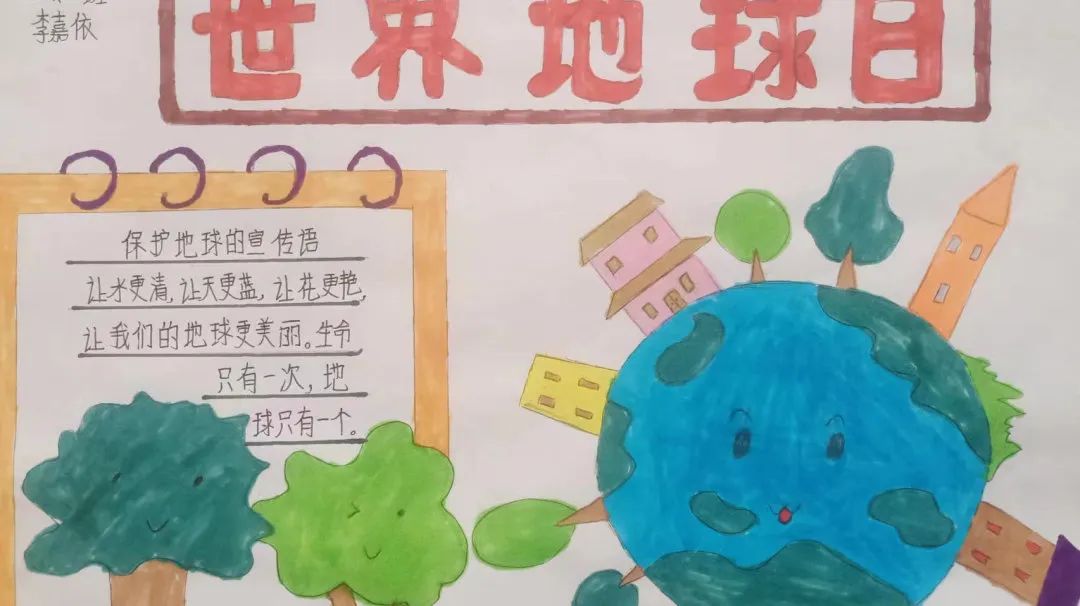 李嘉依
世界地球日
保护地球的宣传语
让水更清,让天更蓝,让花更艳,
让我们的地球更美丽。生命
只有一次,地
球只有一个。